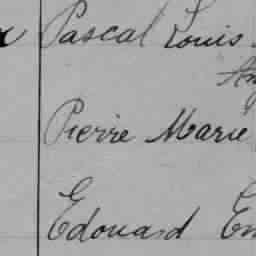 Pascal Louis
Pierre Marie
Edouard